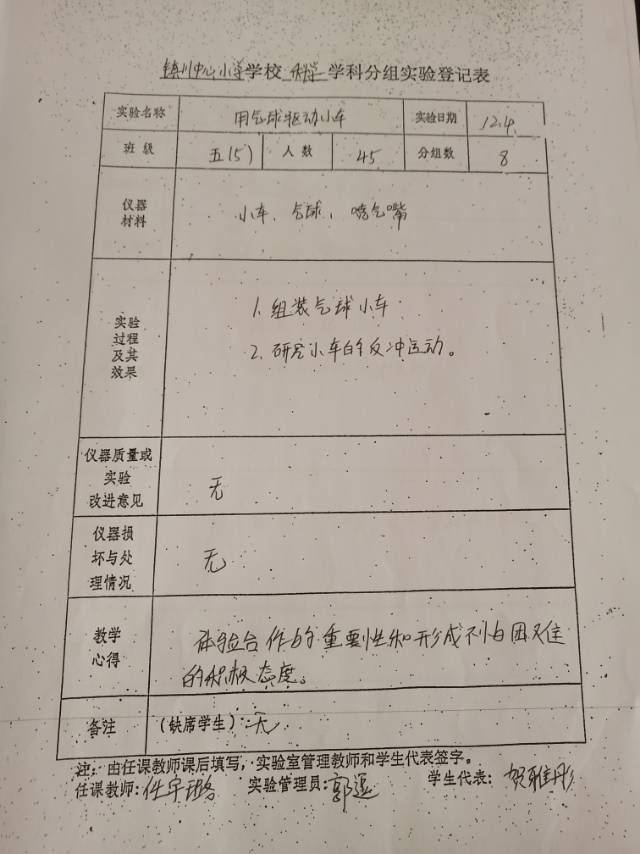 镇川中心小学学校 科学 学科分组实验登记表
实验名称 用气球驱动小车 实验日期 12.4
班级 五(5) 人数 45 分组数 8
仪器
材料
小车、气球、喷气嘴
实验
过程
及其
效果
1. 组装气球小车
2. 研究小车的反冲运动。
仪器质量或
实验
改进意见
无
仪器损
坏与处
理情况
无
教学
心得
体验合作的重要性和形成不怕困难
的积极态度。
备注 (缺席学生): 无
注: 由任课教师课后填写, 实验室管理教师和学生代表签字。
任课教师: 任宇 实验管理员: 郭遥 学生代表: 贺雅彤